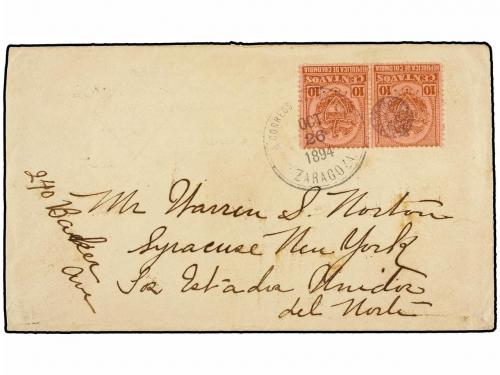 REPUBLICA DE COLOMBIA REPUBLICA DE COLOMBIA
CENTAVOS CENTAVOS
10 10 10 10
CORREOS
OCT
26
1894
ZARAGOZA
Mr Warren S. Norton
Syracuse New York
Los Estados Unidos
del Norte
240 Barker
Ave